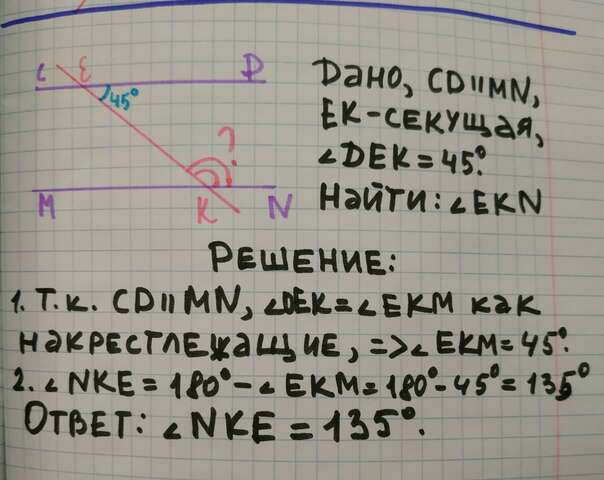 C E D
45°
?
M K N
Дано, CD||MN,
EK-секущая,
∠DEK = 45°.
Найти: ∠EKN
Решение:
1. Т.к. CD||MN, ∠DEK = ∠EKM как
накрестлежащие, => ∠EKM = 45°.
2. ∠NKE = 180° - ∠EKM = 180° - 45° = 135°
Ответ: ∠NKE = 135°.